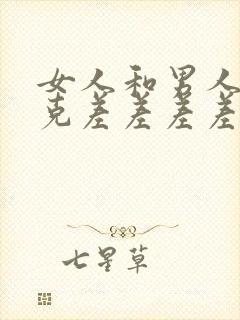 女人和男人
克差差差差
七星草